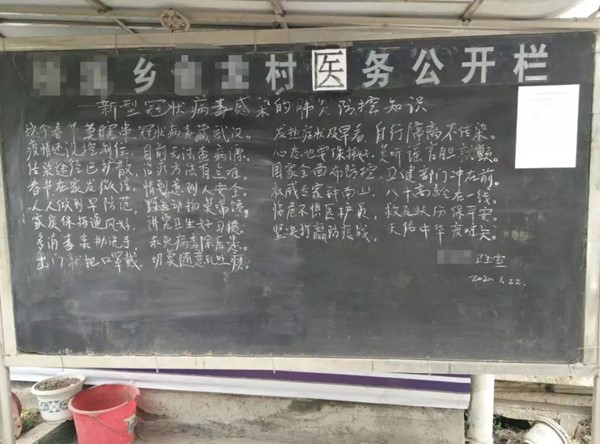 乡 村医务公开栏
新型冠状病毒感染的肺炎防控知识
这个春节 冠状病毒藏武汉。
疫情还没 目前无法查病源
传染途径已扩散 治疗方法有点难
春节在家度做 情别意 人安全
人人做到早防范, 野 常馋
家庭保持通风好, 讲究卫生好习惯
多消毒来勤洗手, 杀灭病毒除后患
出门就把口罩戴, 切莫随意乱吐痰。
发热症状及早看, 自行隔离不传染。
心态也要保持好, 莫听谣言胆就颤。
国家全面布防控 卫健部门冲在前。
权威专家钟南山, 八十高龄在一线。
临危不惧医护员, 救死扶伤保平安。
坚决打赢防疫战, 天佑中华度难关。
卫生室
2020.1.22.